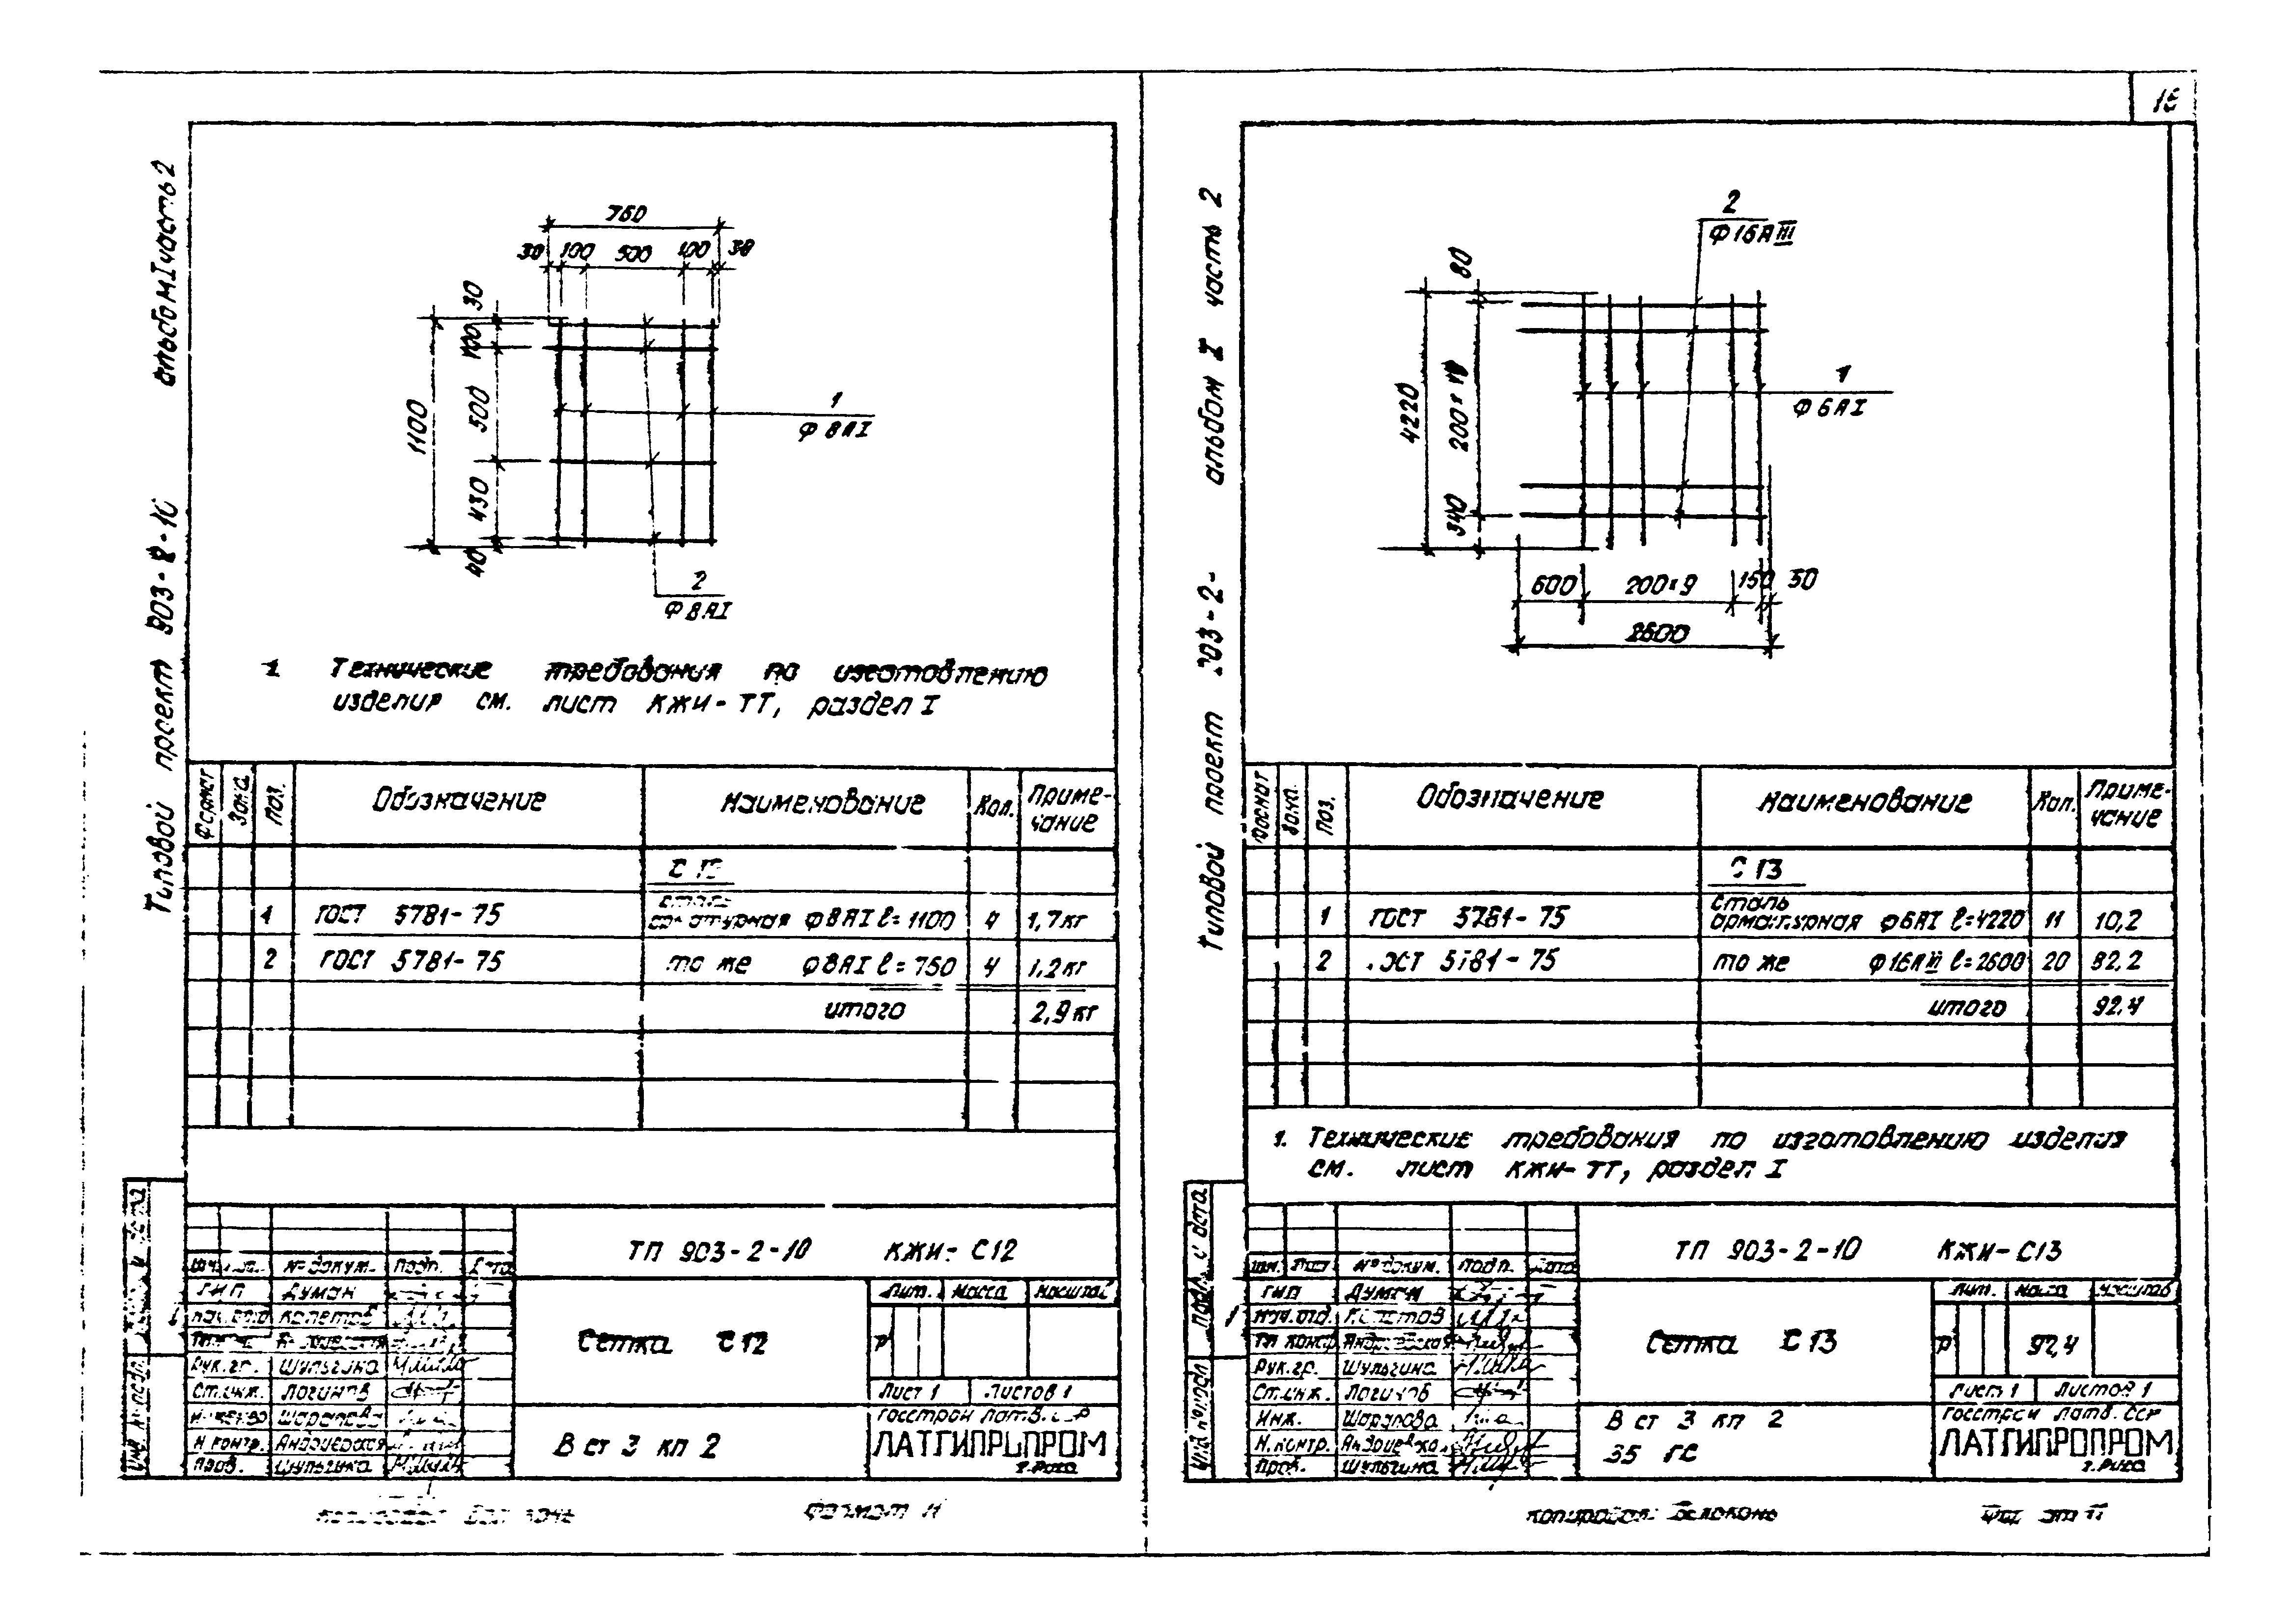 альбом I часть 2
Типовой проект 903-2-10
760
30 100 500 100 30
30
100
500
430
40
1100
1
Ф 8 А I
2
Ф 8 А I
1. Технические требования по изготовлению
изделия см. лист КЖИ-ТТ, раздел I
Формат Зона Поз. Обозначение Наименование Кол. Приме-
чание
С 12
сталь
1 ГОСТ 5781-75 арматурная Ф8АI ℓ=1100 4 1,7кг
2 ГОСТ 5781-75 то же Ф8АI ℓ=760 4 1,2кг
итого 2,9кг
ТП 903-2-10 КЖИ-С12
№ докум. Подп. Дата
ГИП Думан
Рук.гр. Шульгина
Ст.инж. Логинов
Шарапова
Н.контр. Андриевская
Пров. Шульгина
Сетка С12
Лит. Масса Масштаб
Р
Лист 1 Листов 1
В ст 3 кп 2
Госстрой Латв.ССР
ЛАТГИПРОПРОМ
г. Рига
Формат 11
альбом I часть 2
Типовой проект 903-2-
2
Ф16АIII
80
4220
340
1
Ф 6 А I
600 200×9 150 50
2600
Формат Зона Поз. Обозначение Наименование Кол. Приме-
чание
С 13
сталь
1 ГОСТ 5781-75 арматурная Ф6АI ℓ=4220 11 10,2
2 ГОСТ 5781-75 то же Ф16АIII ℓ=2600 20 82,2
итого 92,4
1. Технические требования по изготовлению изделия
см. лист КЖИ-ТТ, раздел I
ТП 903-2-10 КЖИ-С13
Лист № докум. Подп. Дата
ГИП Думан
Нач.отд.
Гл.констр. Андриевская
Рук.гр. Шульгина
Ст.инж. Логинов
Инж. Шарапова
Н.контр. Андриевская
Пров. Шульгина
Сетка С13
Лит. Масса Масштаб
Р 92,4
Лист 1 Листов 1
В ст 3 кп 2
35 ГС
Госстрой Латв. ССР
ЛАТГИПРОПРОМ
г. Рига
Копировал: Белоконь Формат 11